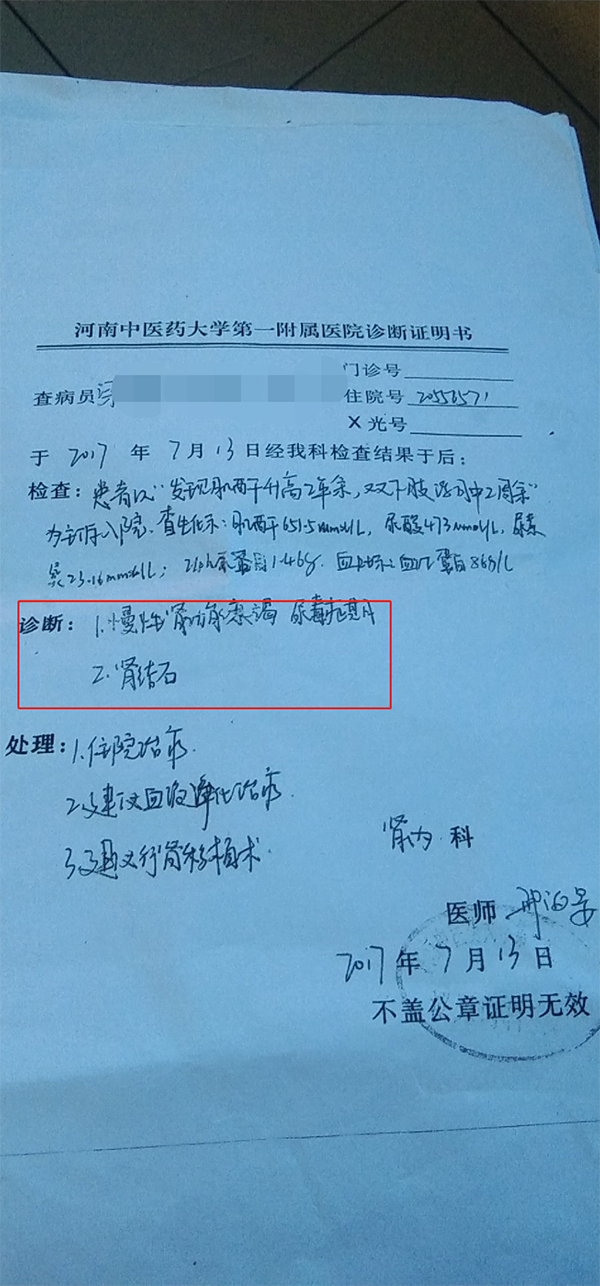 河南中医药大学第一附属医院诊断证明书
门诊号
查病员 住院号 20556571
X光号
于 2017 年 7 月 13 日经我科检查结果于后：
检查：患者以"发现肌酐升高2年余，双下肢浮肿2周余"
为主诉入院. 查生化示：肌酐651.5mmol/L，尿酸473mmol/L，尿素
氮23.16mmol/L；24h尿蛋白1.46g. 血红蛋白86g/L
诊断：1.慢性肾功能衰竭 尿毒症期
2.肾结石
处理：1.住院治疗.
2.建议血液净化治疗.
3.建议行肾移植术.
肾内 科
医师
2017 年 7 月 13 日
不盖公章证明无效